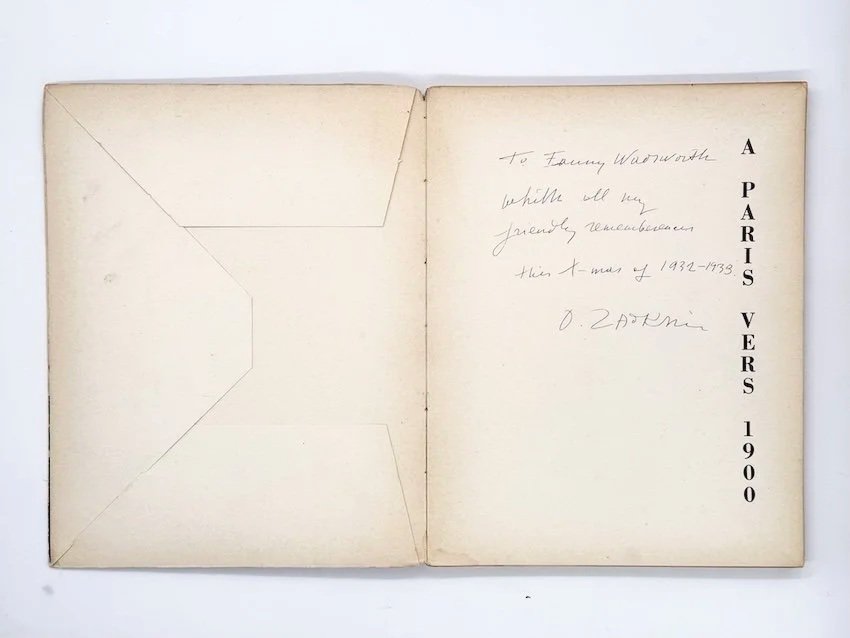 To Fanny Wadsworth
whith all my
friendly remembrances
this X-mas of 1932-1933.
O. ZADKine
A PARIS VERS 1900